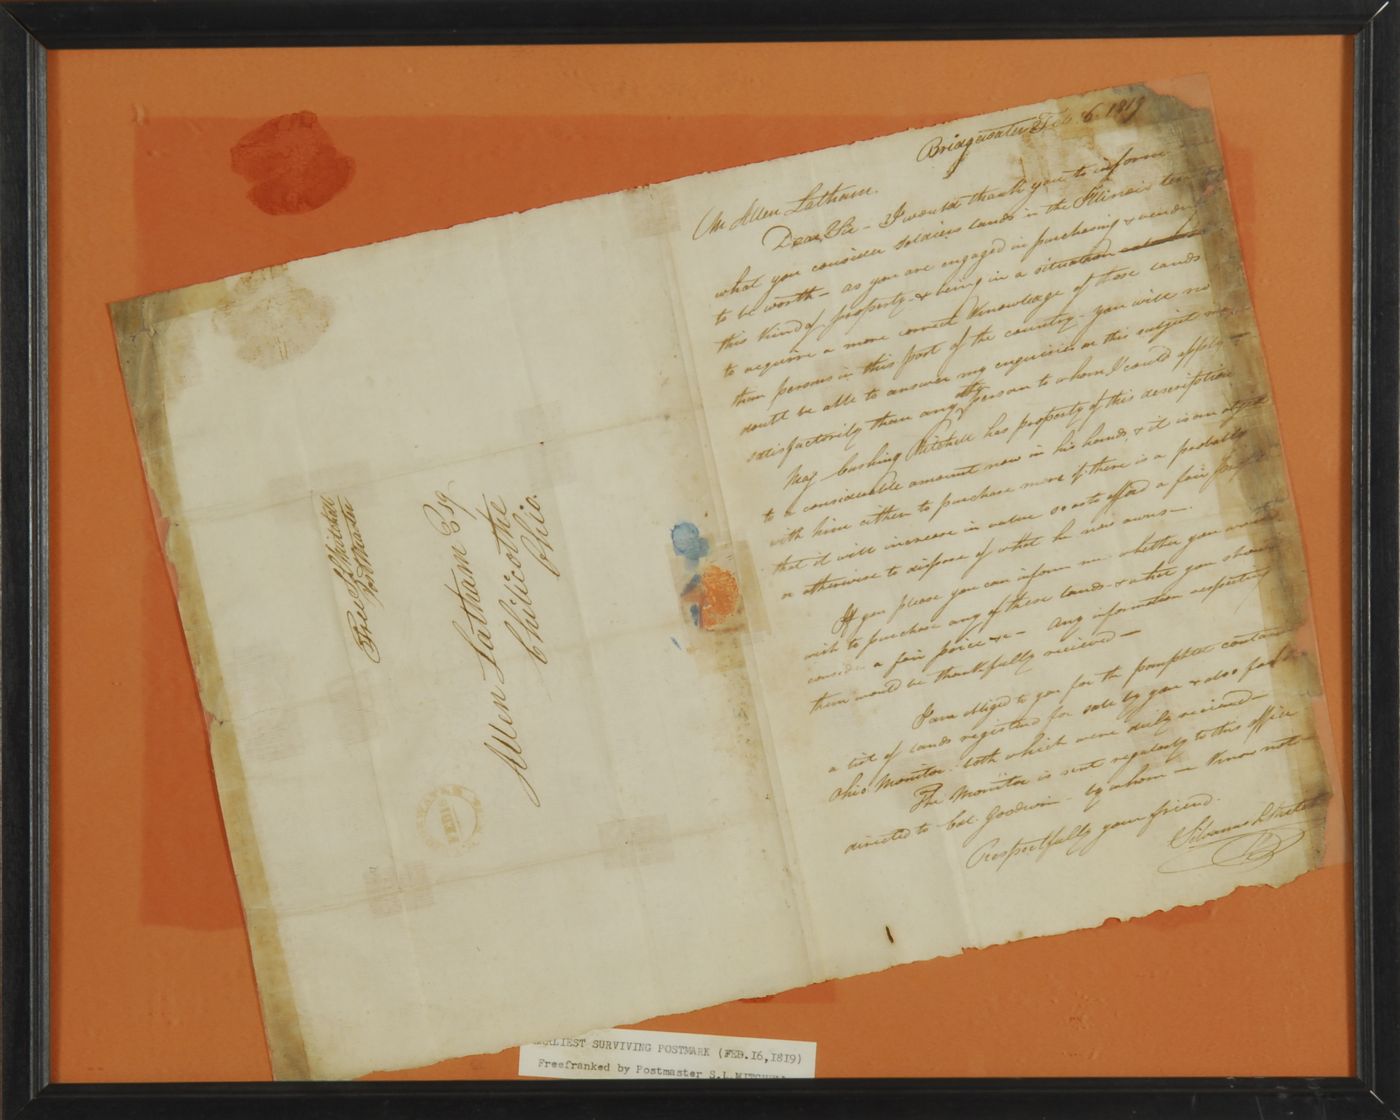 Bridgewater Feb 6. 1819
Mr Allen Latham.
Dear Sir - I would thank you to inform
what you consider soldiers lands in the Illinois
to be worth - as you are engaged in purchasing & vending
this kind of property & being in a situation
to acquire a more correct knowledge of these lands
than persons in this part of the country - you will no
doubt be able to answer my enquiries on this subject
satisfactorily than any other person to whom I could apply -
Maj Cushing Mitchell has property of this description
to a considerable amount now in his hands, & it is an object
with him either to purchase more if there is a probably
that it will increase in value so as to afford a fair
or otherwise to dispose of what he now owns -.
If you please you can inform me whether you would
wish to purchase any of these lands - & what you should
consider a fair price &c - any information respecting
them would be thankfully recieved -
I am obliged to you for the pamphlet
a list of lands registered for sale by you & also for the
Ohio Monitor. both which were duly recieved -
The Monitor is sent regularly to this office
directed to Goodwin - by whom we know not -
Respectfully your friend.
Silvanus L Mitchell
Free S. L Mitchell
Post Master
Allen Latham Esq
Chilicothe
Ohio.
FEB 16
EARLIEST SURVIVING POSTMARK (FEB.16,1819)
Freefranked by Postmaster S.L.MITCHELL